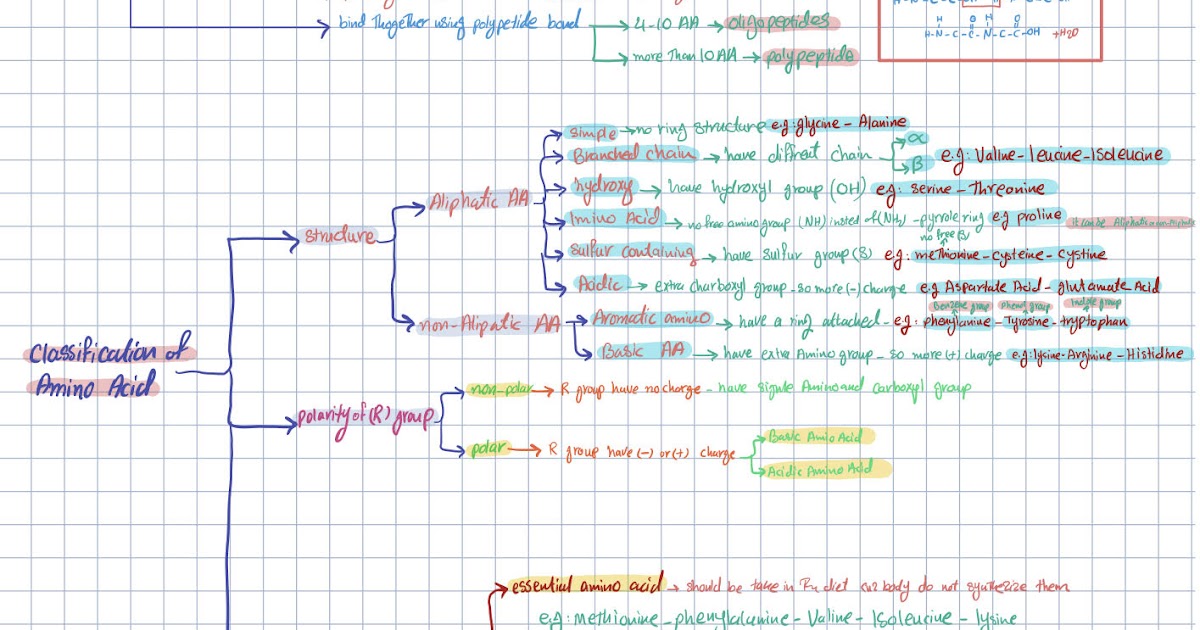 bind thogether using polypetide bond → 4-10 AA → oligopeptides
more than 10 AA → polypeptide
H O H O
H-N-C-C-N-C-C-OH +H2O
simple → no ring structure e.g: glycine - Alanine
Branched chain → have diffrent chain α
β e.g: Valine - leucine - Isoleucine
Aliphatic AA
hydroxy → have hydroxyl group (OH) eg: serine - Threonine
Imino Acid → no free amino group (NH) insted of (NH2) - pyrrole ring e.g proline
no free (S)
structure
sulfur containing → have sulfur group (S) e.g: methionine - cysteine - Cystine
Acidic → extra charboxyl group - so more (-) charge e.g Aspartate Acid - glutamate Acid
Benzene group Phenol group Indole group
non-Alipatic AA → Aromatic amino → have a ring attached - e.g: phenylanine - Tyrosine - tryptophan
Classification of
Amino Acid
Basic AA → have extra Amino group - so more (+) charge e.g: lysine - Arginine - Histidine
non-polar → R group have no charge - have signle Amino and carboxyl group
polarity of (R) group
Basic Amio Acid
polar → R group have (-) or (+) charge
Acidic Amino Acid
essential amino acid → should be take in the diet cuz body do not synthezize them
e.g: methionine - phenylalanine - Valine - Isoleucine - lysine